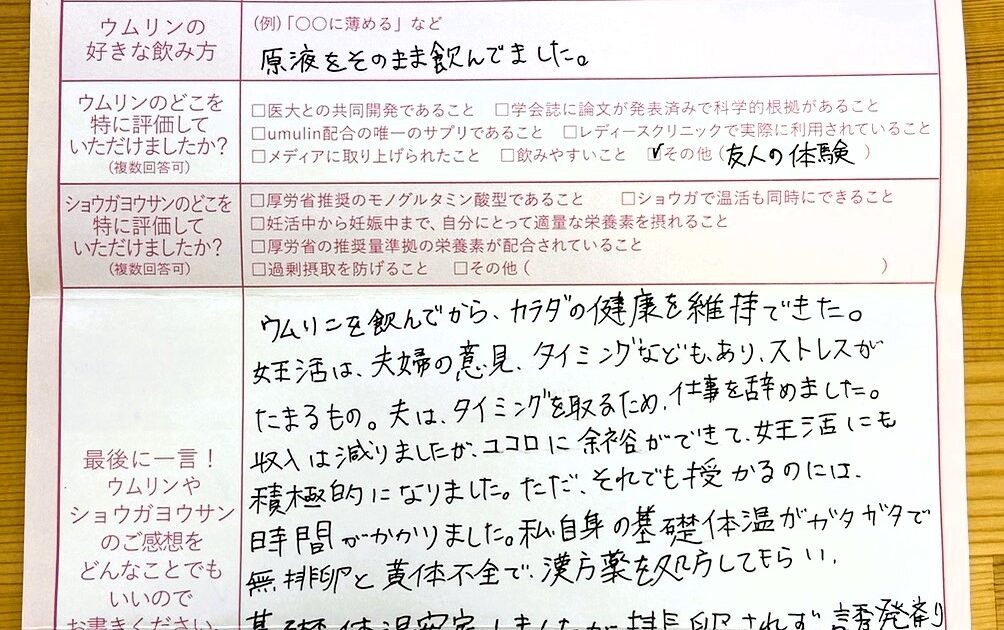 ウムリンの
好きな飲み方
(例)「〇〇に薄める」など
原液をそのまま飲んでました。
ウムリンのどこを
特に評価して
いただけましたか?
(複数回答可)
□医大との共同開発であること □学会誌に論文が発表済みで科学的根拠があること
□umulin配合の唯一のサプリであること □レディースクリニックで実際に利用されていること
□メディアに取り上げられたこと □飲みやすいこと ☑その他(友人の体験)
ショウガヨウサンのどこを
特に評価して
いただけましたか?
(複数回答可)
□厚労省推奨のモノグルタミン酸型であること □ショウガで温活も同時にできること
□妊活中から妊娠中まで、自分にとって適量な栄養素を摂れること
□厚労省の推奨量準拠の栄養素が配合されていること
□過剰摂取を防げること □その他( )
最後に一言!
ウムリンや
ショウガヨウサン
のご感想を
どんなことでも
いいので
お書きください。
ウムリンを飲んでから、カラダの健康を維持できた。
妊活は、夫婦の意見、タイミングなどもあり、ストレスが
たまるもの。夫は、タイミングを取るため、仕事を辞めました。
収入は減りましたが、ココロに余裕ができて、妊活にも
積極的になりました。ただ、それでも授かるのには、
時間がかかりました。私自身の基礎体温がガタガタで
無排卵と黄体不全で、漢方薬を処方してもらい、
基礎体温安定しましたが、排卵されず誘発剤